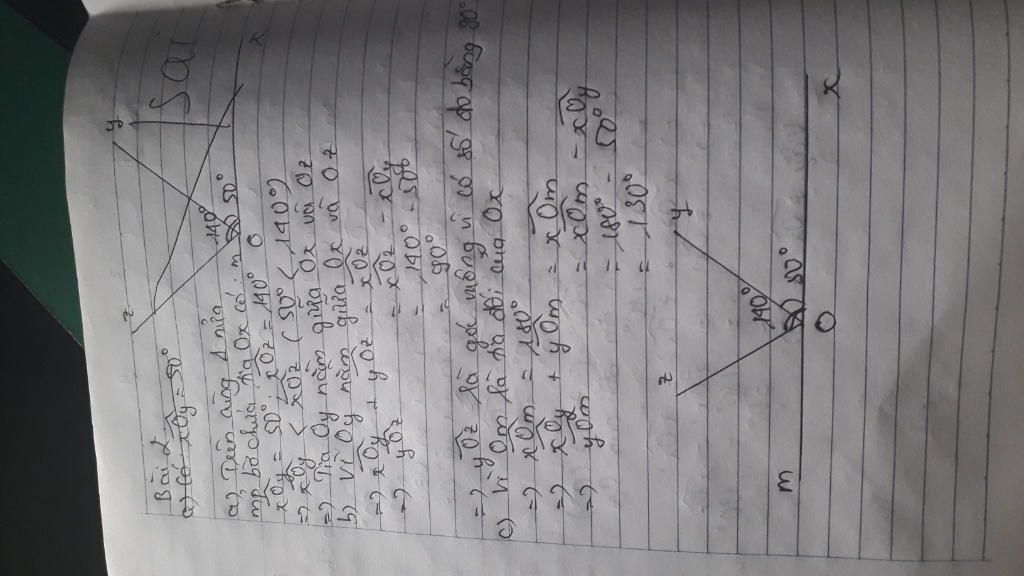 Bài 2
a) Có xOy = 50°
z
y
Sai
140°
50°
m
O
x
a), Trên cùng 1 nửa
mp bờ chứa tia Ox có:
xOy = 50°; xOz = 140°
=> xOy < xOz (50° < 140°)
=> Tia Oy nằm giữa Ox và Oz
b) Vì Oy nằm giữa Ox và Oz
=> xOy + yOz = xOz
=> yOz = xOz - xOy
= 140° - 50°
= 90°
=> yOz là góc vuông vì có số đo bằng 90°
c) Vì Om là tia đối của Ox
=> xOm = 180°
=> xOy + yOm = xOm
=> yOm = xOm - xOy
= 180° - 50°
= 130°
z
y
140°
50°
m
O
x